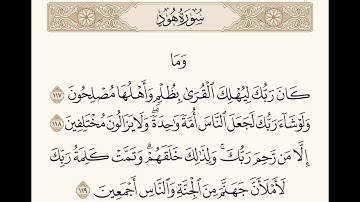 سُورَةُ هُودٍ
وَمَا
كَانَ رَبُّكَ لِيُهْلِكَ ٱلْقُرَىٰ بِظُلْمٍ وَأَهْلُهَا مُصْلِحُونَ ١١٧
وَلَوْ شَآءَ رَبُّكَ لَجَعَلَ ٱلنَّاسَ أُمَّةً وَٰحِدَةً ۖ وَلَا يَزَالُونَ مُخْتَلِفِينَ ١١٨
إِلَّا مَن رَّحِمَ رَبُّكَ ۚ وَلِذَٰلِكَ خَلَقَهُمْ ۗ وَتَمَّتْ كَلِمَةُ رَبِّكَ
لَأَمْلَأَنَّ جَهَنَّمَ مِنَ ٱلْجِنَّةِ وَٱلنَّاسِ أَجْمَعِينَ ١١٩